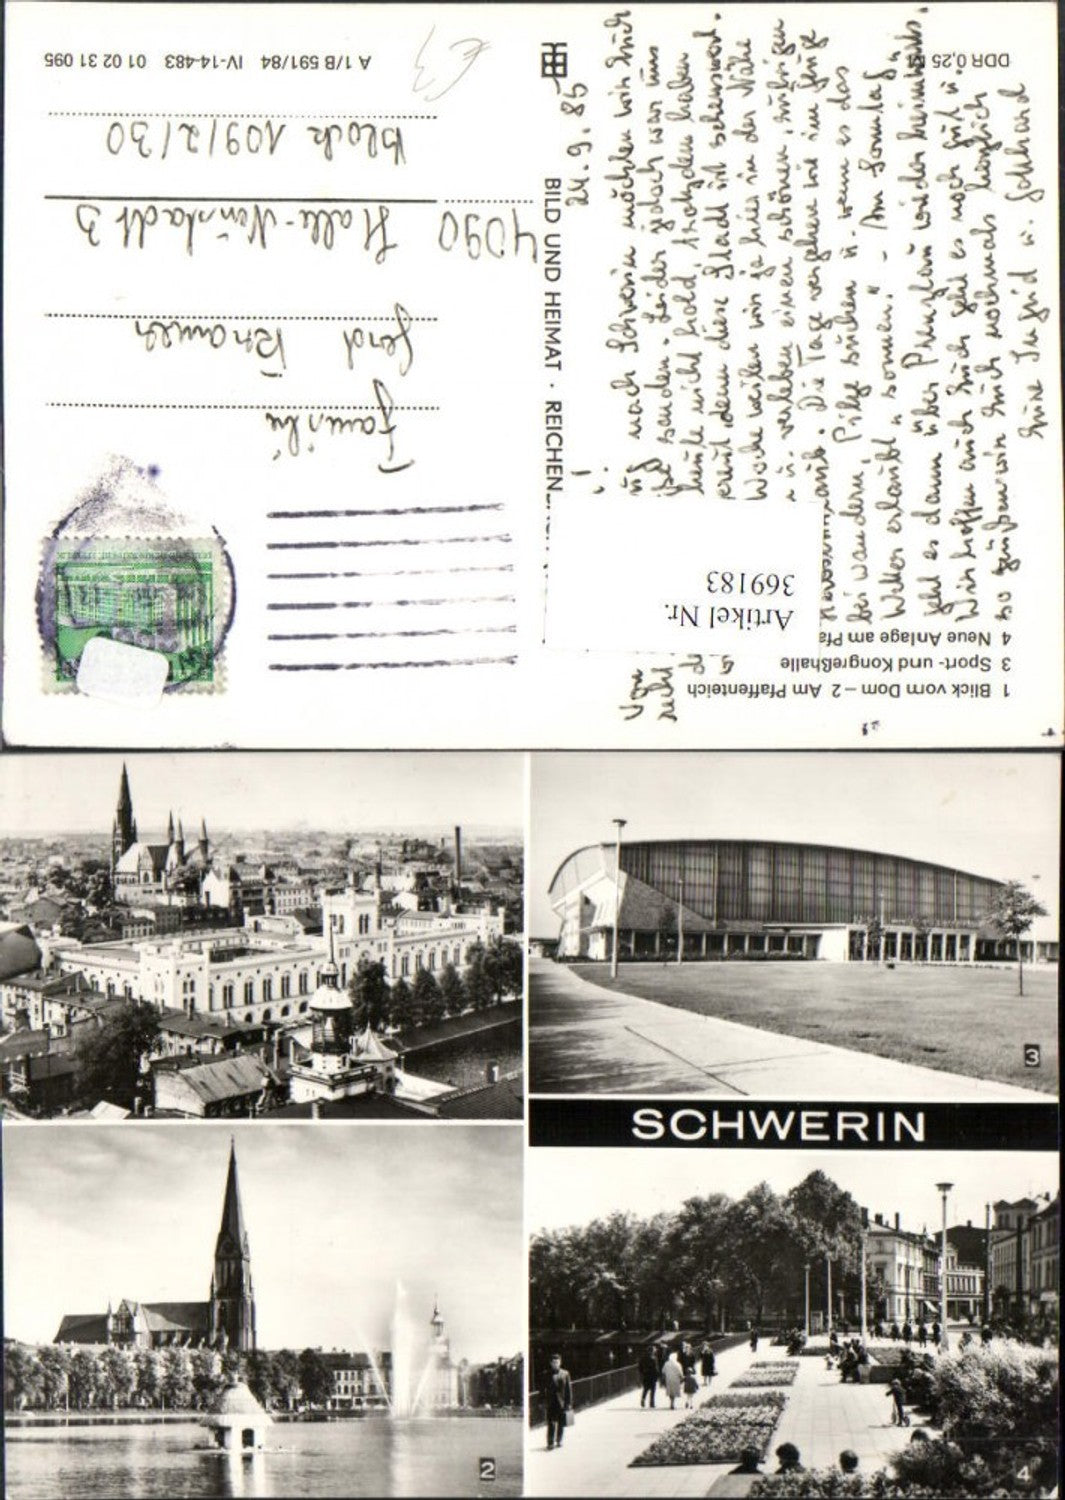 1 Blick vom Dom – 2 Am Pfaffenteich
3 Sport- und Kongreßhalle
4 Neue Anlage am Pfa
Artikel Nr.
369183
24.9.85
nach Schwerin möchten wir Euch
senden. Leider jedoch war uns
heute nicht hold, trotzdem haben
denn diese Stadt ist sehenswert.
Woche weilen wir ja hier in der Nähe
u. verleben einen schönen, ruhigen
Die Tage vergehen wie im Fluge
bei wandern, Pilze suchen u. wenn es das
Wetter erlaubt „sonnen." – Am Sonntag
geht es dann über Prenzlau wieder heimwärts.
Wir hoffen auch Euch geht es noch gut u.
so grüßen wir Euch nochmals herzlich
Eure Ingrid u. Gebhard
BILD UND HEIMAT · REICHEN
Familie
Gerd Kramer
4090 Halle-Neustadt
Block 109/2/30
€3
A 1/B 591/84 IV-14-483 01 02 31 095
DDR 0,25 M
1
2
3
SCHWERIN
4